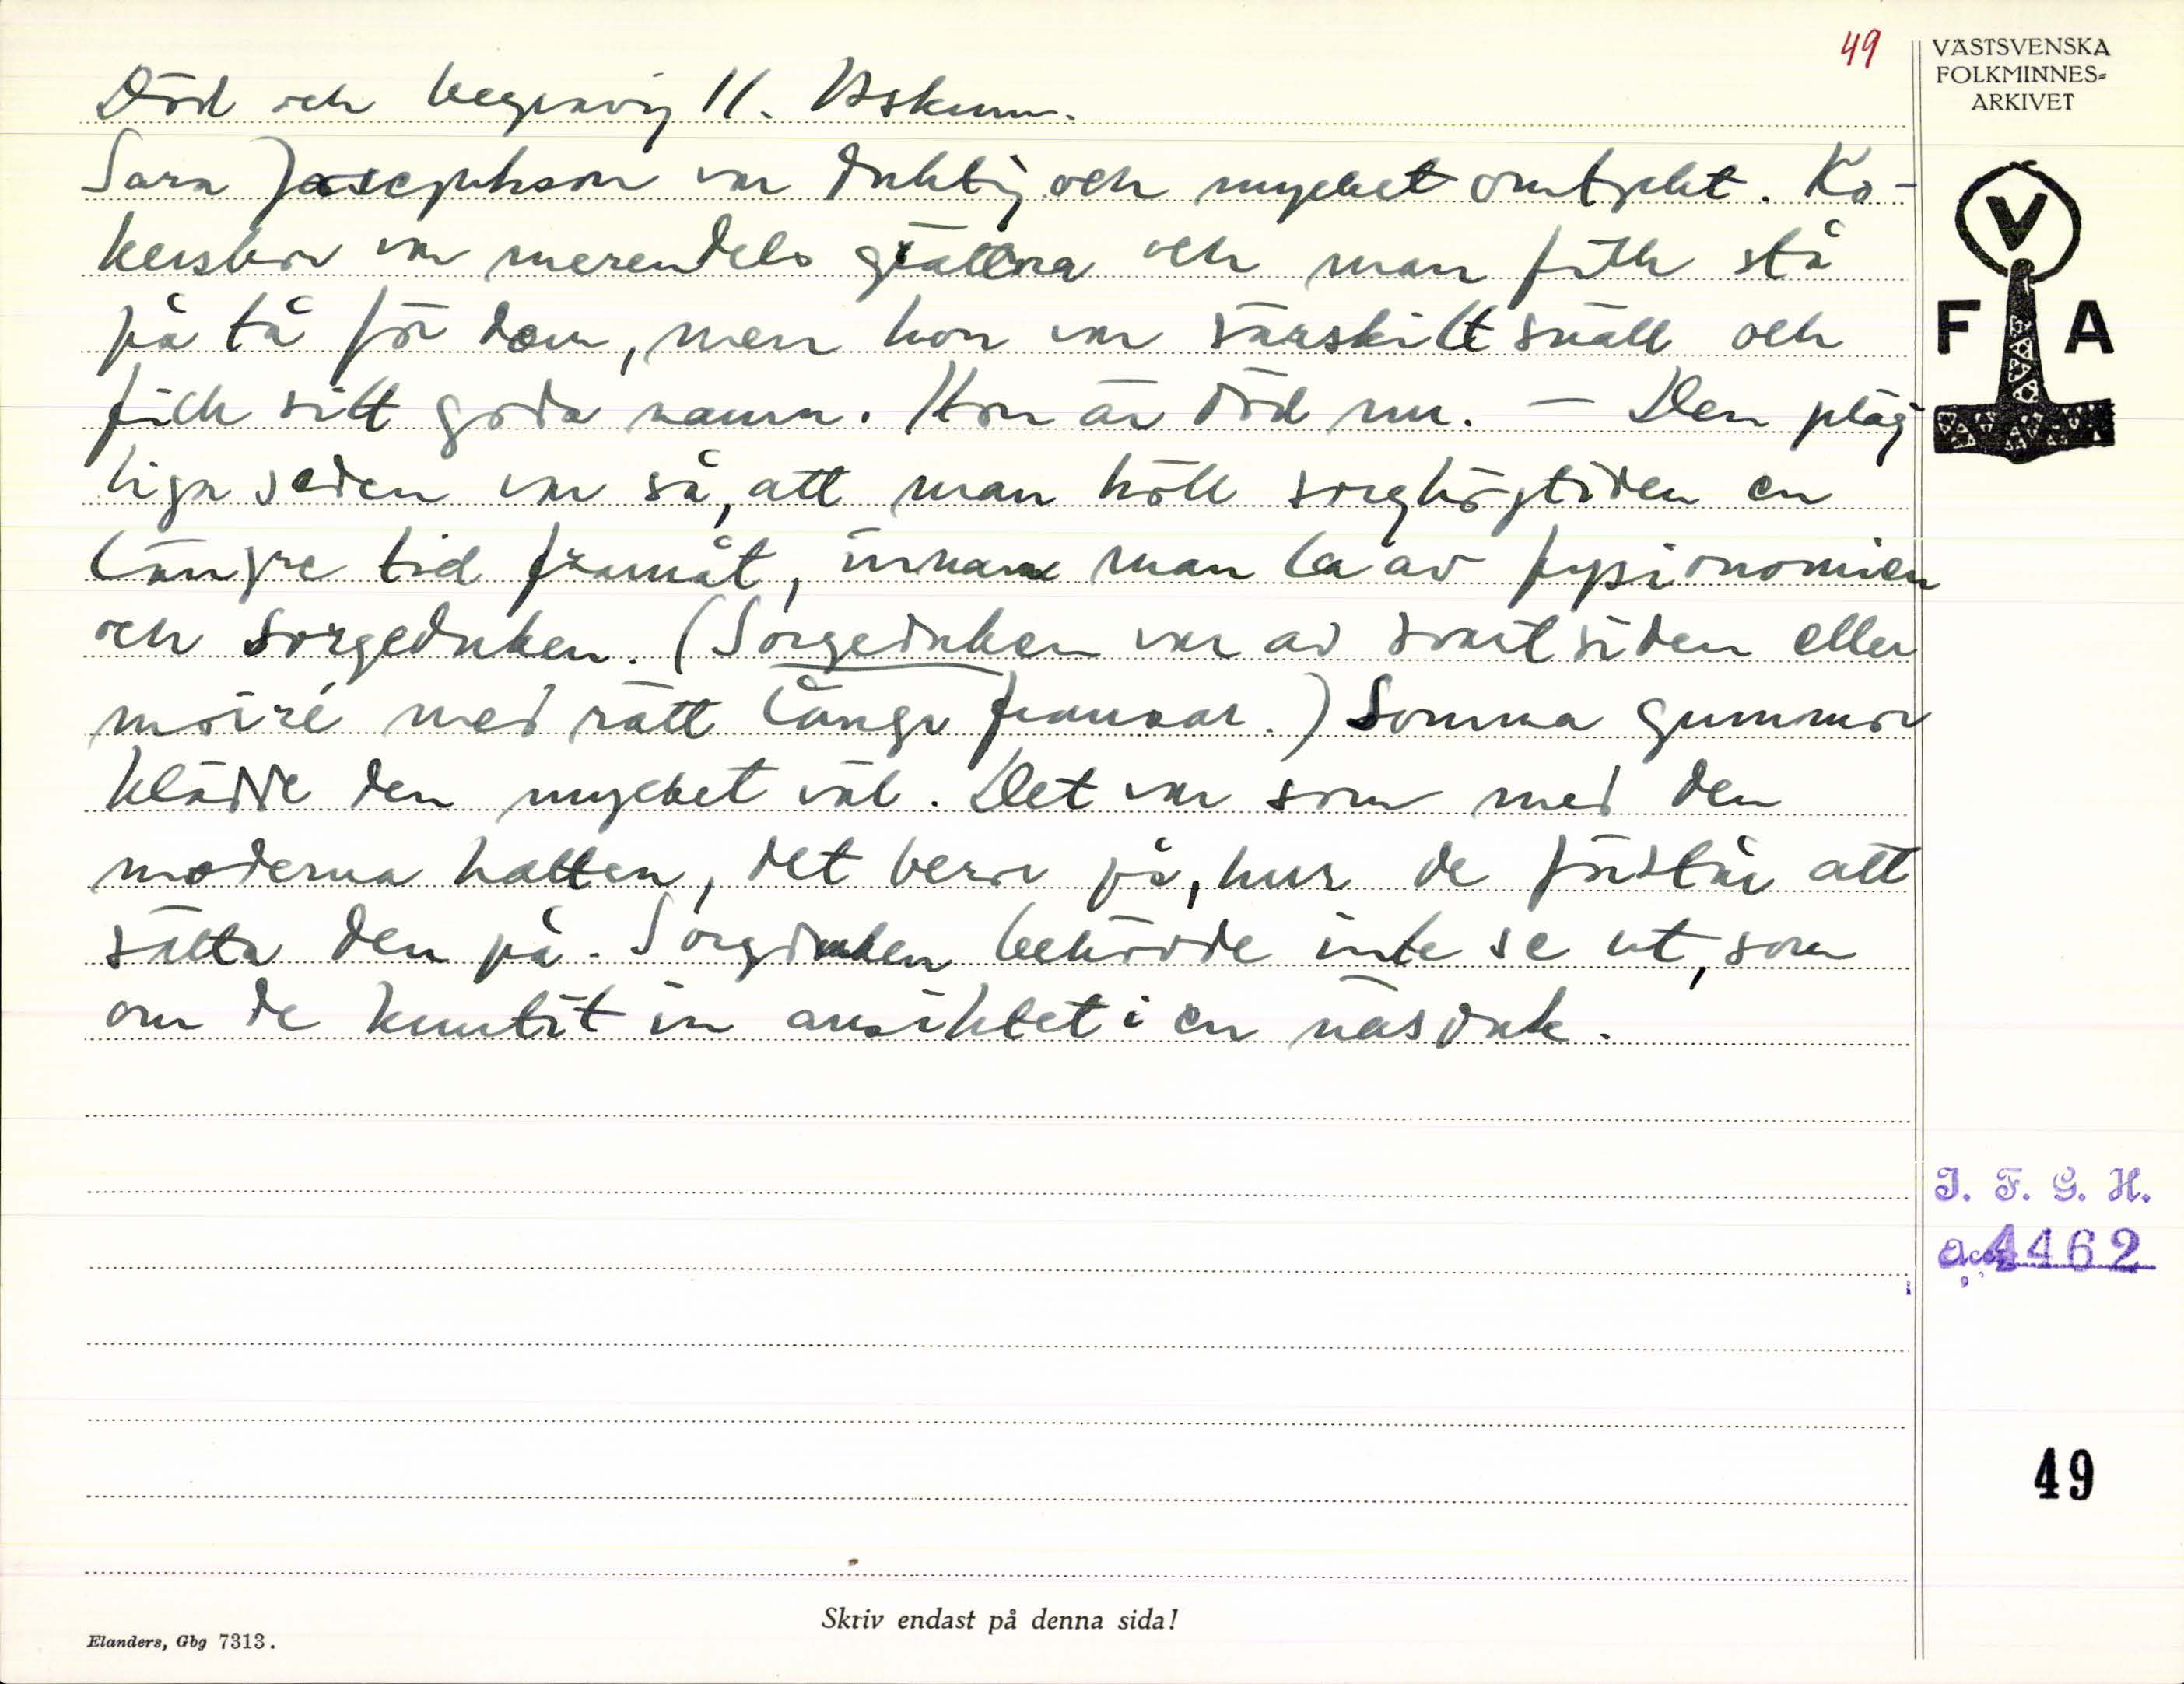 49
VÄSTSVENSKA
FOLKMINNES-
ARKIVET
Död och begravnig 11. Askum.
Sara Josephson var duktig och mycket omtyckt. Ko-
kerskor var merendels grällna och man fick stå
på tå för dom, men hon var särskilt snäll och
fick sitt goda namn. Hon är död nu. — Den pläg
liga seden var så, att man höll sorghögtiden en
längre tid framåt, innan man la av fysionomien
och sorgeduken. (Sorgeduken var av svart siden eller
moiré med rätt långa fransar.) Somma gummor
klädde den mycket väl. Det var som med den
moderna hatten, det beror på, hur de förstår att
sätta den på. Sorgduken behövde inte se ut, som
om de knutit in ansiktet i en näsduk.
V
F A
I. F. G. H.
Acc. 4462
49
Skriv endast på denna sida!
Elanders, Gbg 7313.